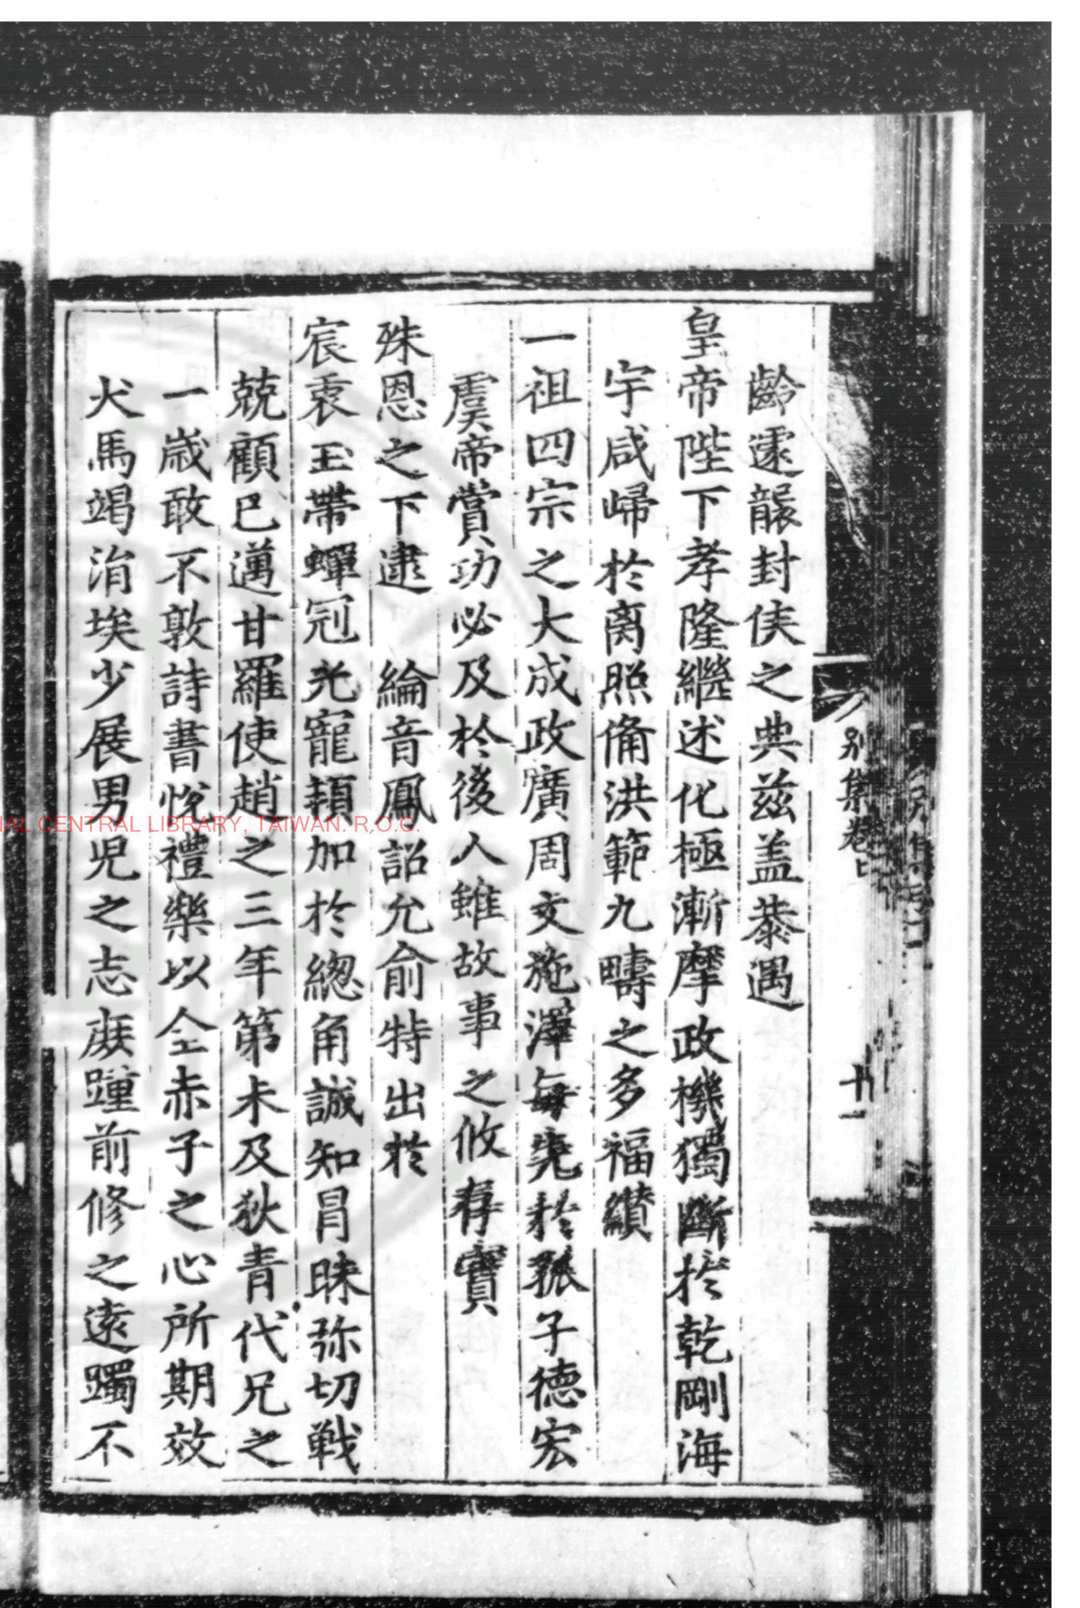 齡遽襲封侯之典茲盖恭遇
皇帝陛下孝隆繼述化極漸摩政機獨斷扵乾剛海
宇咸歸扵离照俻洪範九疇之多福纘
一祖四宗之大成政廣周文施澤每先扵孤子德宏
虞帝賞功必及扵後人雖故事之攸存實
殊恩之下逮 綸音鳳詔允俞特出扵
宸衷玉帶蟬冠光寵頻加扵緫角誠知冒昧弥切戰
兢顧已邁甘羅使趙之三年第未及狄青代兄之
一歲敢不敦詩書悅禮樂以仝赤子之心所期效
犬馬竭涓埃少展男児之志庻踵前修之遠躅不
別集卷
十一
NAL CENTRAL LIBRARY, TAIWAN. R.O.C.